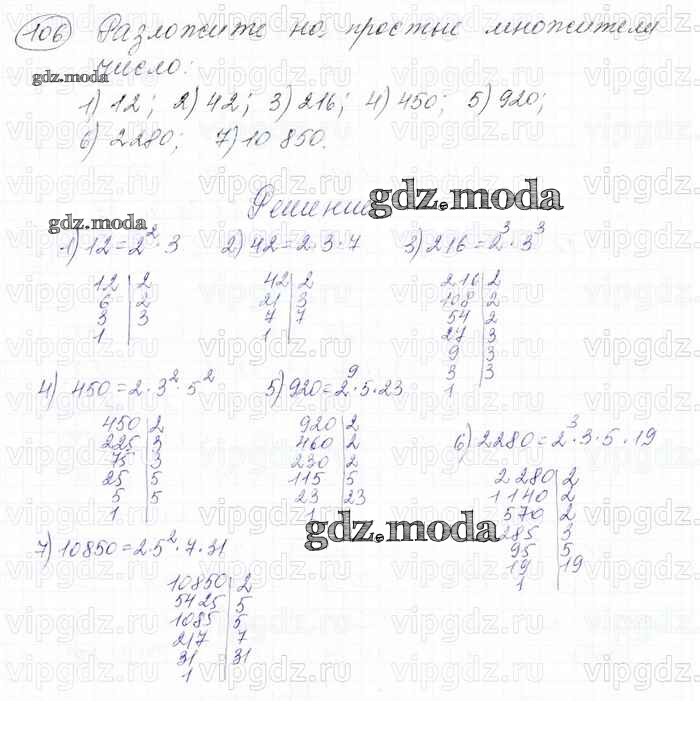 106 Разложите на простые множители
число:
1) 12; 2) 42; 3) 216; 4) 450; 5) 920;
6) 2280; 7) 10 850.
Решение
1) 12=2²·3 2) 42=2·3·7 3) 216=2³·3³
12|2 42|2 216|2
6|2 21|3 108|2
3|3 7|7 54|2
1 1 27|3
9|3
3|3
1
4) 450=2·3²·5² 5) 920=2⁹·5·23
450|2 920|2
225|3 460|2
75|3 230|2
25|5 115|5
5|5 23|23
1 1
6) 2280=2³·3·5·19
2280|2
1140|2
570|2
285|3
95|5
19|19
1
7) 10850=2·5²·7·31
10850|2
5425|5
1085|5
217|7
31|31
1
gdz.moda
gdz.moda
gdz.moda
gdz.moda
vipgdz.ru